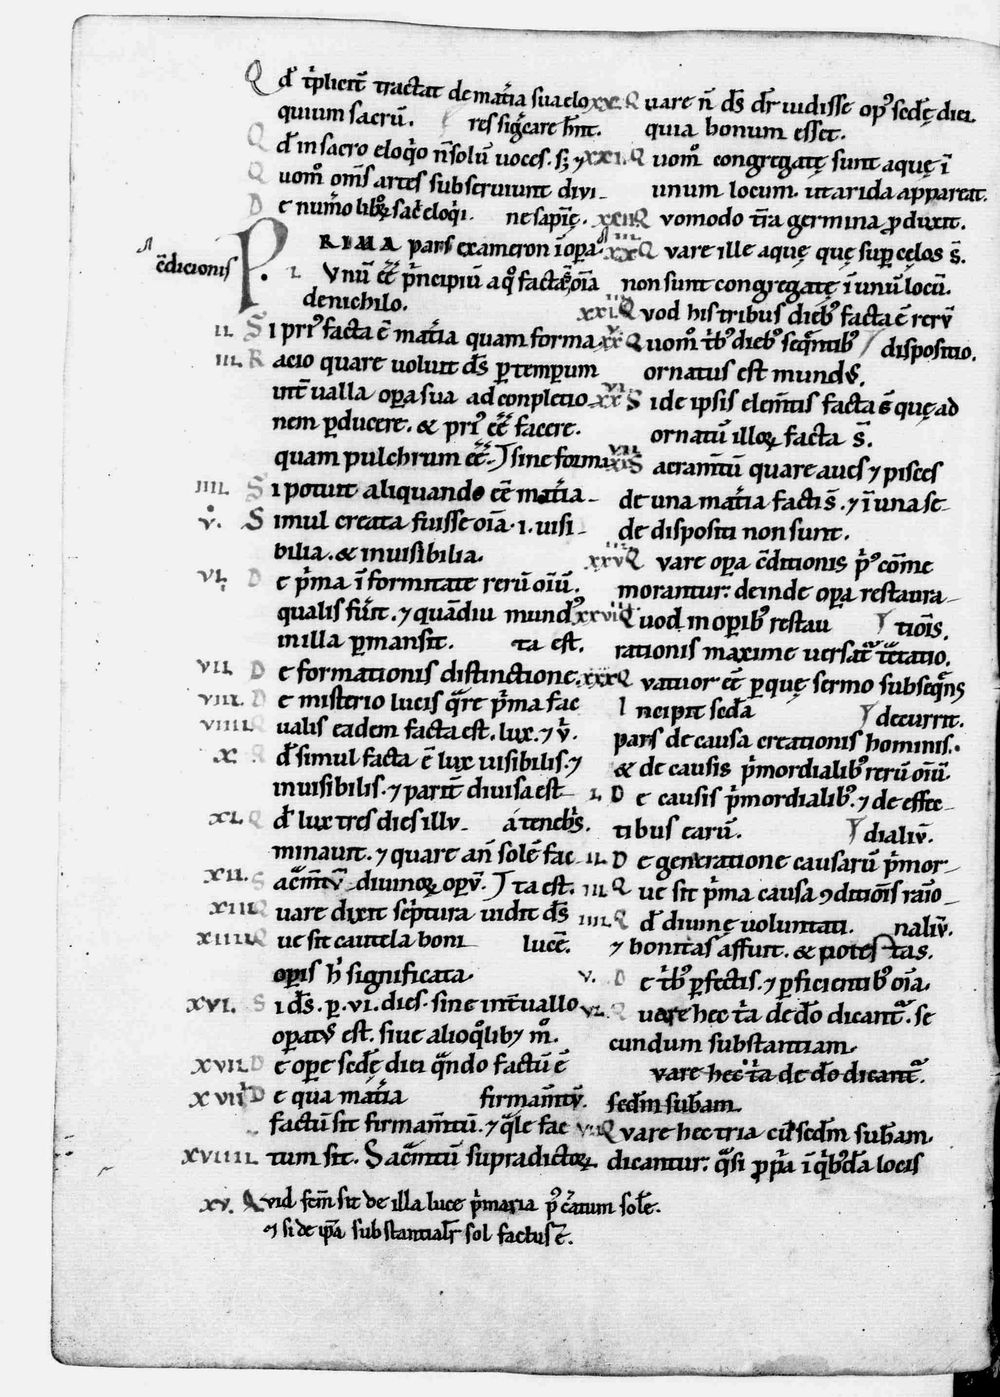 Qd' t'plicit' tractat de mat'ia sua elo
quium sacrū. res sig'care hn̄t.
Qd' in sacro eloq'o n̄ solū uoces. s; ⁊
Quom° om̄s artes subseruiunt divi
De num'o libroꝝ sac'i eloq'i. ne sapię.
PRIMA pars exameron ī opa
c̄dicionis
I. Vnū eē p'ncipiū a q° facta s̄ oīa
de nichilo.
II. Si pri' facta ē mat'ia quam forma
III. Racio quare uoluit ds̄ p tempum
int'ualla opa sua ad conpletio
nem pducere. & pri' eē facere.
quam pulchrum eē. sine forma
IIII. Si potuit aliquando eē mat'ia
V. Simul creata fuisse oīa .i. uisi
bilia. & inuisibilia.
VI. De p'ma īformitate rerū oīū.
qualis fu'it. ⁊ quādiu mund'
in illa pmansit. ta est.
VII. De formationis distinctione.
VIII. De misterio lucis q're p'ma fac
VIIII. Qualis eadem facta est. lux. ⁊ v'.
X. Qd' simul facta ē lux uisibilis. ⁊
inuisibilis. ⁊ parit' diuisa est
XI. Qd' lux tres dies illv a teneb's.
minauit. ⁊ quare an̄ solē fac
XII. Sac'm̄tv diuinoꝝ opv. ta est.
XIII. Quare dixit sc'ptura uidit ds̄
XIIII. Que sit cautela boni lucē.
opis h' significata.
XVI. Si ds̄. p. VI. dies. sine int'uallo
opatv' est. siue alio q°lib; m°.
XVII. De ope scd'ę diei q'ndo factū ē
XVIII. De qua mat'ia firmam̄tv.
factū sit firmam̄tū. ⁊ q'le fac
XVIIII. tum sit. Sac'm̄tum supradictoꝝ
XV. Quid fcm̄ sit de illa luce p'maria p' c'atum sole.
⁊ si de ip̄a substantialr' sol factus ē.
XX. Quare n̄ ds̄ dr' uidisse op' scd'ę diei
quia bonum esset.
XXI. Quom° congregatę sunt aquę ī
unum locum. ut arida appareat.
XXII. Quomodo t'ra germina pduxit.
XXIII. Quare ille aquę quę sup celos s̄.
non sunt congregatę ī unū locū.
XXIIII. Quod his tribus dieb' facta ē rerv
XXV. Quom° t'b' dieb' seq'ntib' dispositio.
ornatus est mund'.
XXVI. Si de ipsis elem̄tis facta s̄ quę ad
ornatū illoꝝ facta s̄.
XXVII. Sacram̄tū quare aues ⁊ pisces
de una mat'ia facti s̄. ⁊ ī una se
de dispositi non sunt.
XXVIII. Quare opa c̄ditionis p'° cōme
morantur: deinde opa restaura
XXVIIII. Quod in opib' restau tiōis.
rationis maxime uersat' t'ctatio.
XXX. Quatuor eē p quę sermo subseq'ns
Incipit scd'a decurrit.
pars de causa creationis hominis.
& de causis p'mordialib' rerū oīū.
I. De causis p'mordialib'. ⁊ de effec
tibus earū. dialiv.
II. De generatione causarū p'mor
III. Que sit p'ma causa ꝯditiōis raīo
IIII. Qd' diuinę voluntati. naliv.
⁊ bonitas affuit. & potestas.
V. De t'b' pfectis. ⁊ pficientib' oīa.
VI. Quare hec t'a de dō dicant'. se
cundum substantiam.
vare hec t'a de dō dicant'.
scdm subam.
VII. Quare hec tria cū scdm subam.
dicantur: q'si ppa ī q'b'da locis